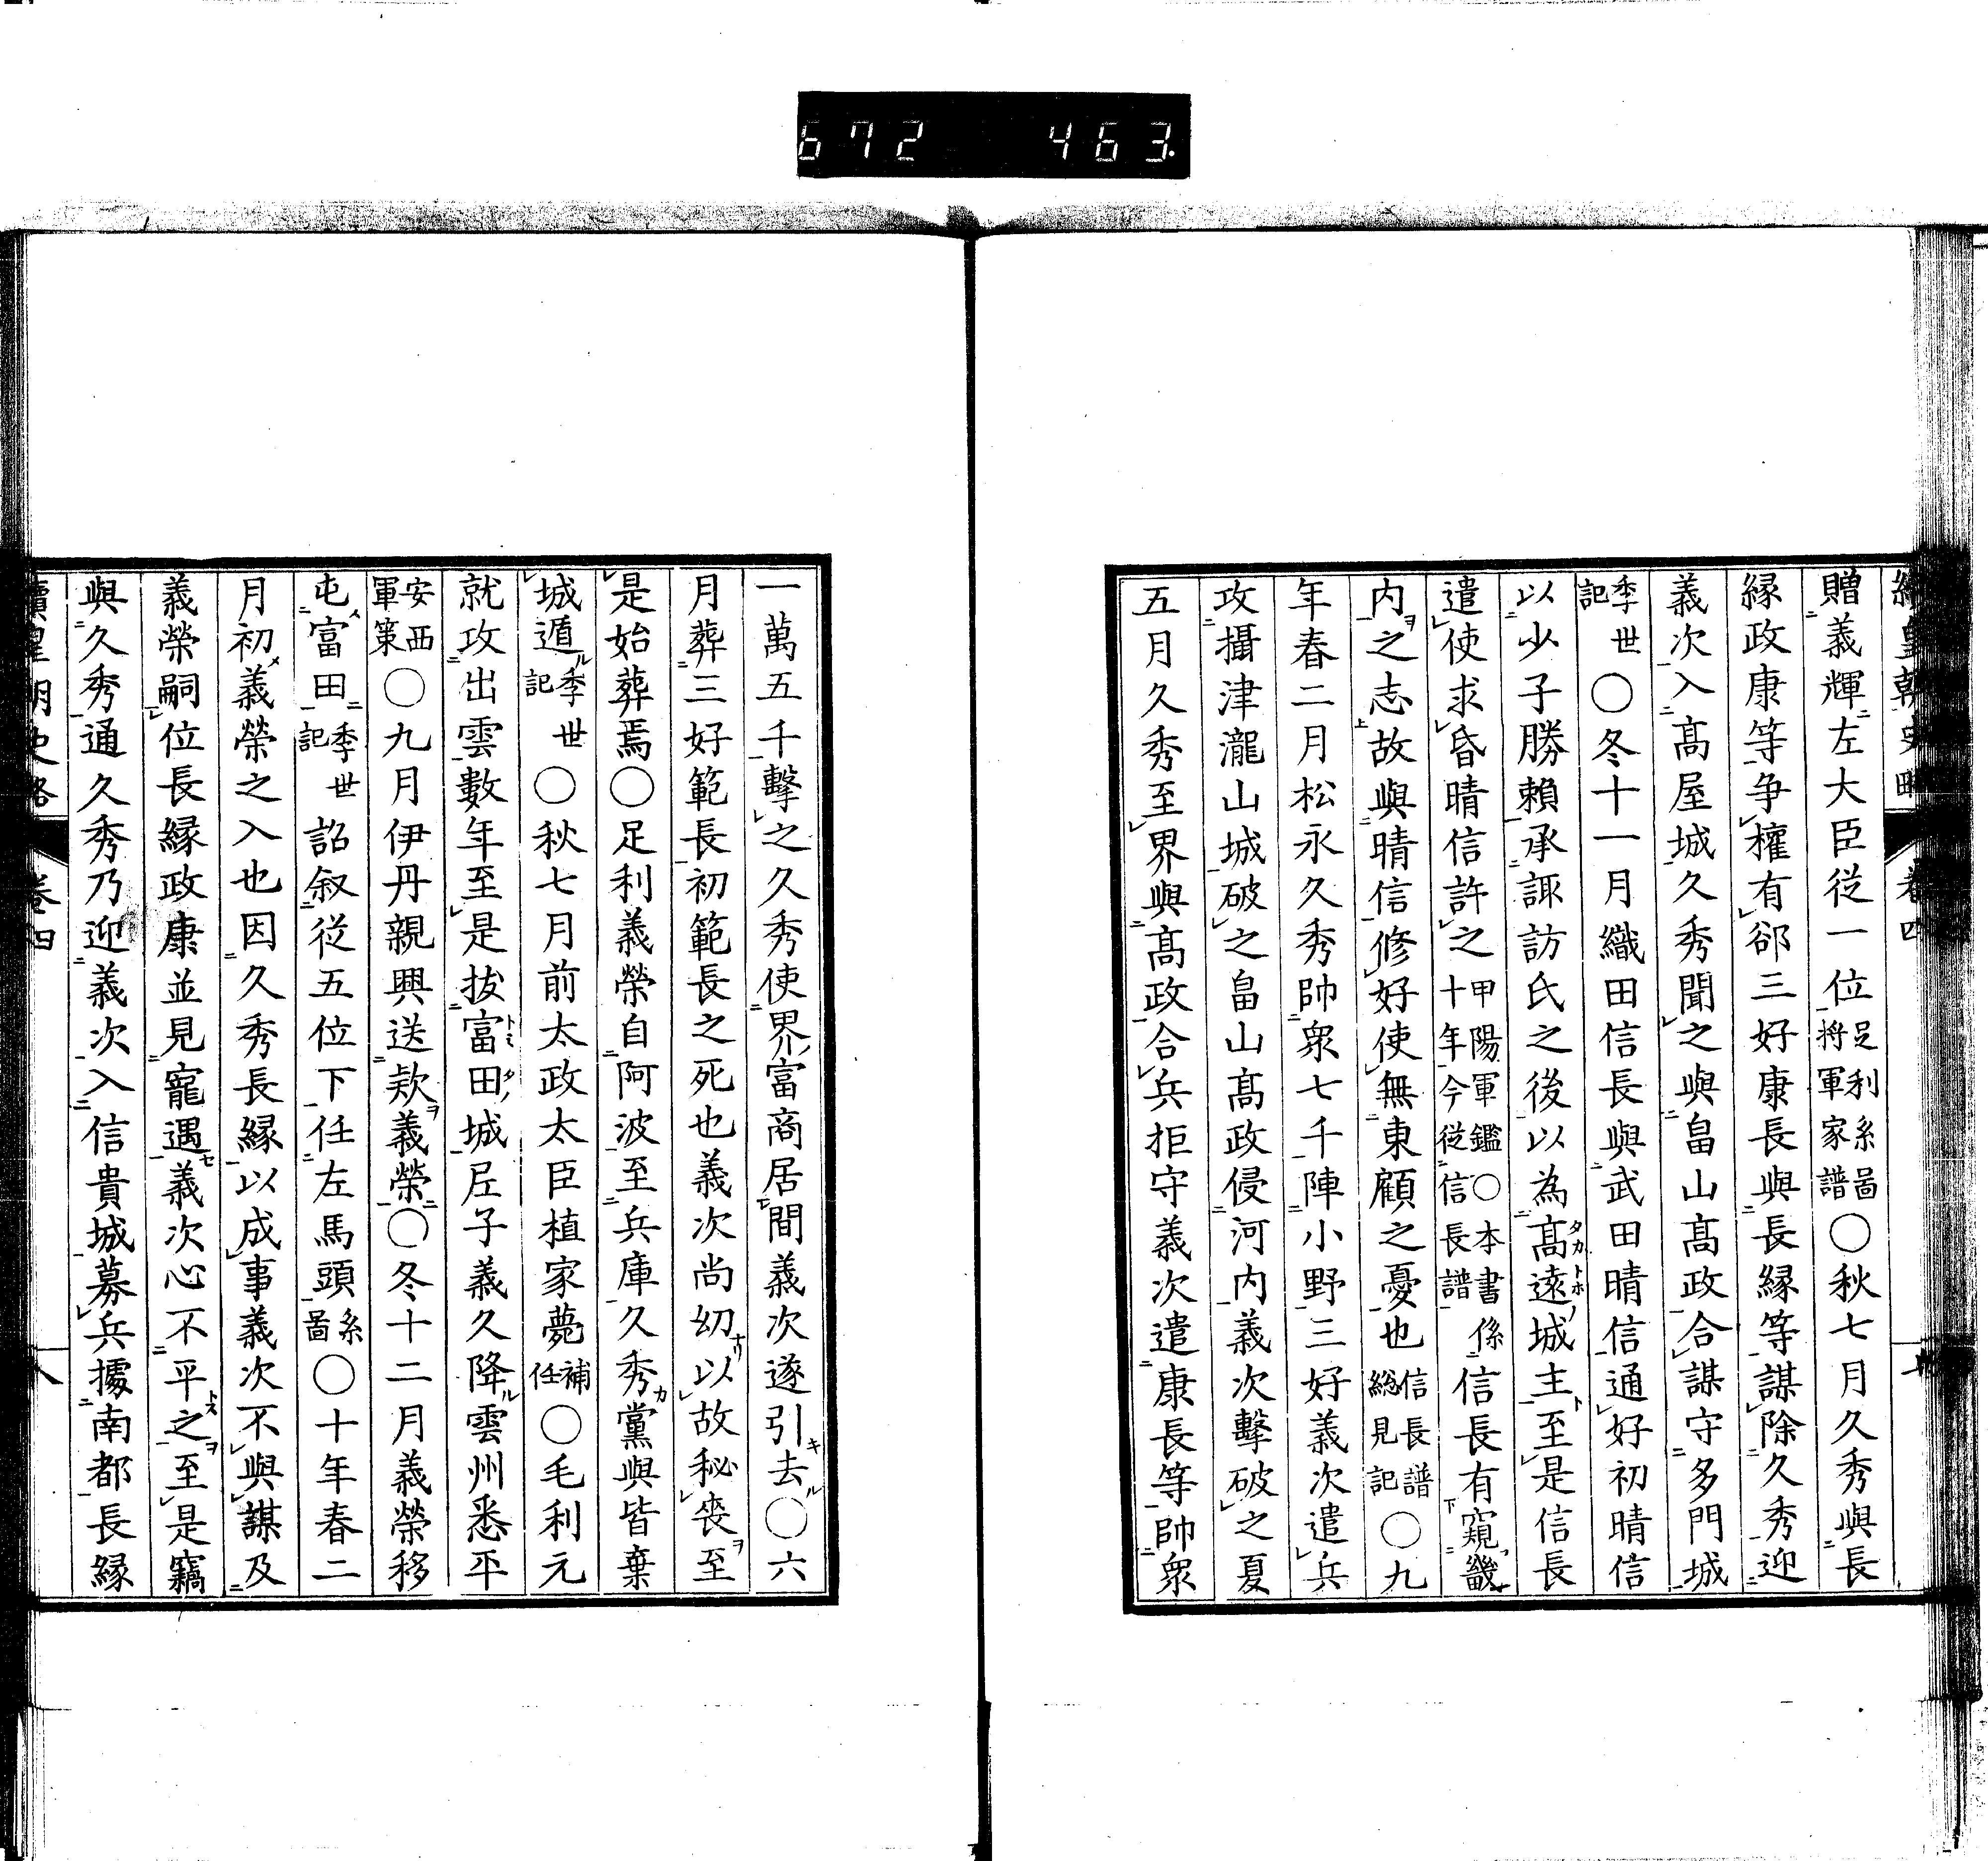 672 463.
續皇朝史略 卷四
贈義輝左大臣從一位足利系啚將軍家譜〇秋七月久秀與長
縁政康等爭權有郤三好康長與長縁等謀除久秀迎
義次入髙屋城久秀聞之與畠山髙政合謀守多門城
季世記〇冬十一月織田信長與武田晴信通好初晴信
以少子勝賴承諏訪氏之後以為髙遠城主至是信長
遣使求昏晴信許之甲陽軍鑑〇本書係十年今從信長譜信長有窺畿
内之志故與晴信修好使無東顧之憂也信長譜総見記〇九
年春二月松永久秀帥衆七千陣小野三好義次遣兵
攻攝津瀧山城破之畠山髙政侵河内義次擊破之夏
五月久秀至界與髙政合兵拒守義次遣康長等帥衆
一萬五千擊之久秀使界富商居間義次遂引去〇六
月葬三好範長初範長之死也義次尚幼以故秘喪至
是始葬焉〇足利義榮自阿波至兵庫久秀黨與皆棄
城遁季世記〇秋七月前太政太臣植家薨補任〇毛利元
就攻出雲數年至是拔富田城尼子義久降雲州悉平
安西軍策〇九月伊丹親興送款義榮〇冬十二月義榮移
屯富田季世記詔叙從五位下任左馬頭系啚〇十年春二
月初義榮之入也因久秀長縁以成事義次不與謀及
義榮嗣位長縁政康並見寵遇義次心不平之至是竊
與久秀通久秀乃迎義次入信貴城募兵據南都長縁
續皇朝史略 卷四 八